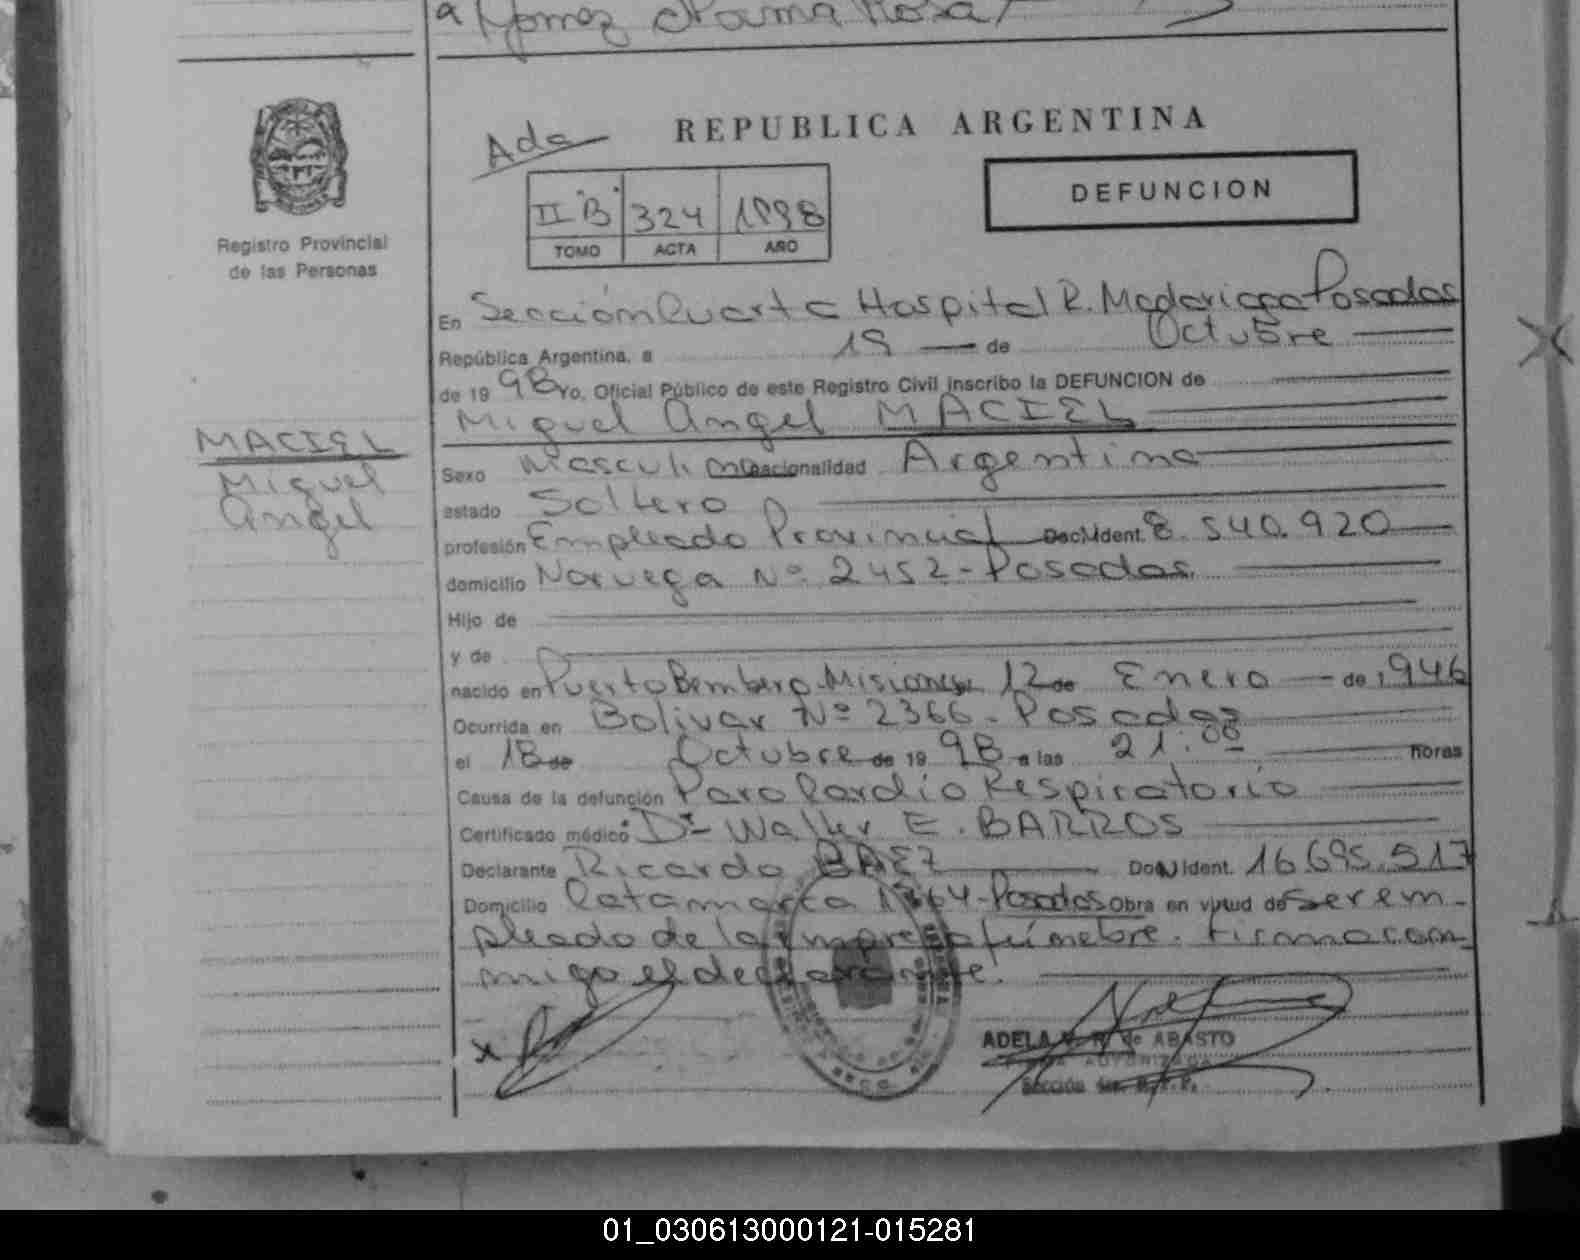 a Gomez Rosa
REPUBLICA ARGENTINA
Ada
DEFUNCION
II "B" 324 1998
TOMO ACTA AÑO
Registro Provincial
de las Personas
En Sección Cuarta Hospital R. Madariaga Posadas
República Argentina, a 19 de Octubre
de 19 98 Yo, Oficial Público de este Registro Civil inscribo la DEFUNCION de
Miguel Angel MACIEL
MACIEL
Miguel
Angel
Sexo Masculino nacionalidad Argentina
estado Soltero
profesión Empleado Provincial Doc. Ident. 8.540.920
domicilio Noruega Nº 2452-Posadas
Hijo de
y de
nacido en Puerto Bemberg-Misiones 12 de Enero de 1946
Ocurrida en Bolivar Nº 2366-Posadas
el 18 de Octubre de 19 98 a las 21:00 horas
Causa de la defunción Paro Cardio Respiratorio
Certificado médico Dr Walter E. BARROS
Declarante Ricardo BAEZ Doc Ident. 16.695.517
Domicilio Catamarca 1764-Posadas Obra en virtud de ser em-
pleado de la Empresa fúnebre. Firma con-
migo el declarante.
ADELA de ABASTO
AUTORIZADA
Sección 4ta. R.P.P.
01_030613000121-015281